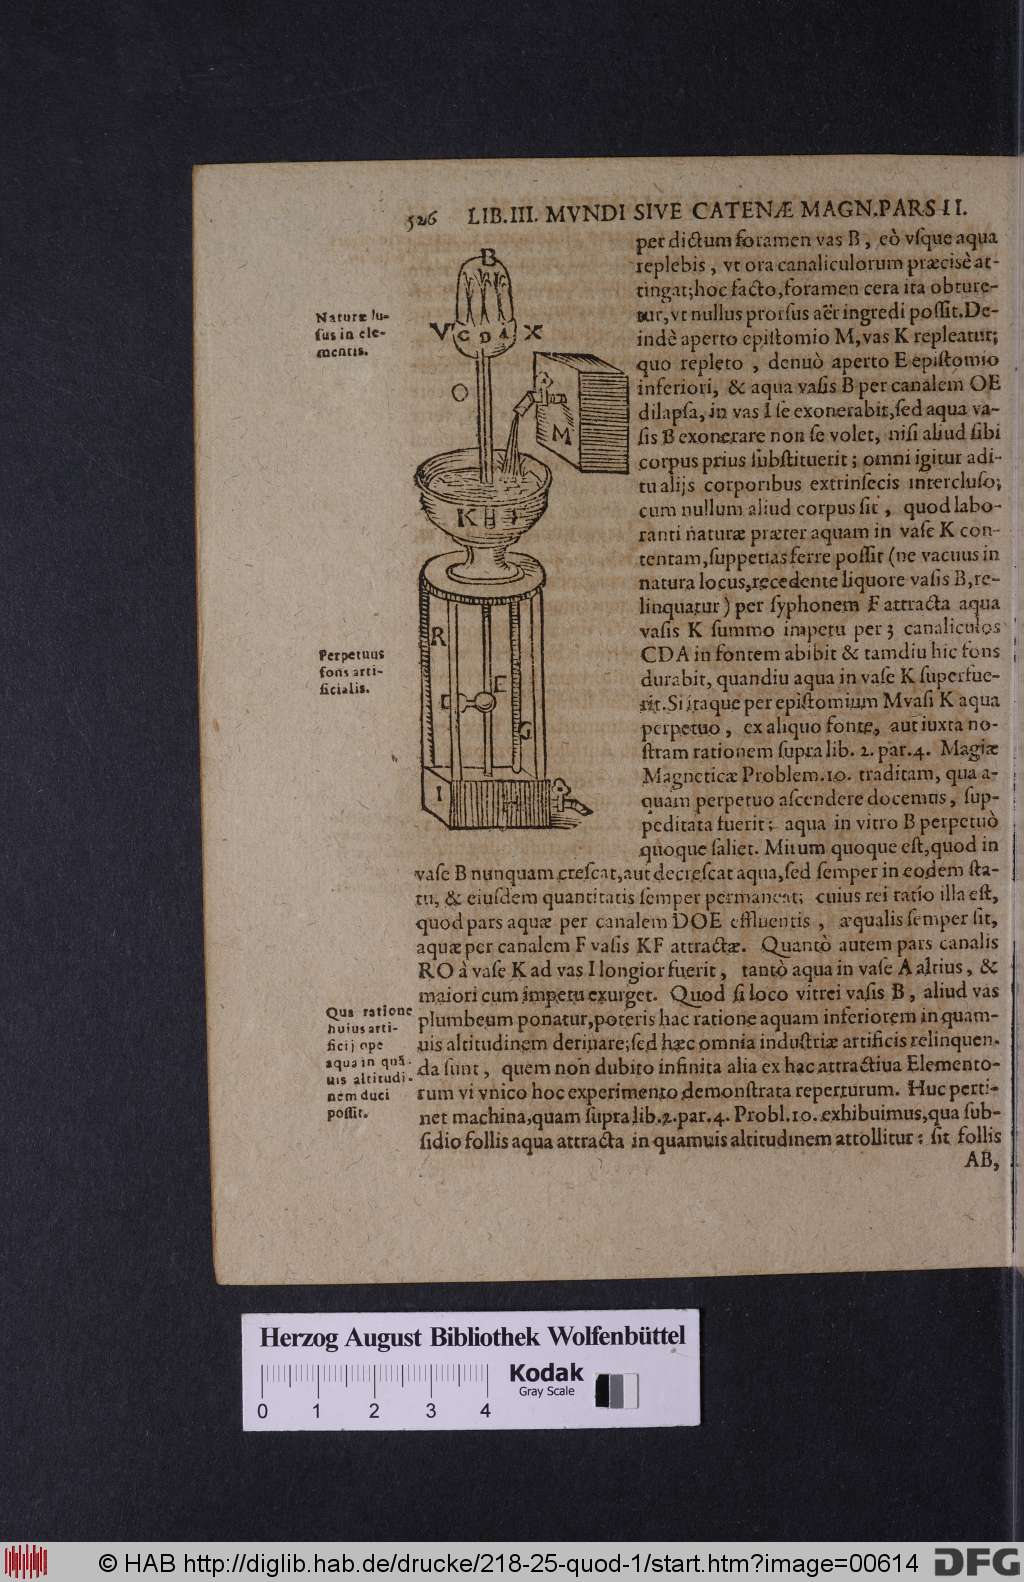 526 LIB. III. MVNDI SIVE CATENÆ MAGN. PARS II.
Naturæ lu-
ſus in ele-
mentis.
per dictum foramen vas B, eò vſque aqua
replebis, vt ora canaliculorum præcisè at-
tingat; hoc facto, foramen cera ita obture-
tur, vt nullus prorſus aër ingredi poſſit. De-
indè aperto epiſtomio M, vas K repleatur;
quo repleto, denuò aperto E epiſtomio
inferiori, & aqua vaſis B per canalem OE
dilapſa, in vas I ſe exonerabit, ſed aqua va-
ſis B exonerare non ſe volet, niſi aliud ſibi
corpus prius ſubſtituerit; omni igitur adi-
tu alijs corporibus extrinſecis intercluſo;
cum nullum aliud corpus ſit, quod labo-
ranti naturæ præter aquam in vaſe K con-
tentam, ſuppetias ferre poſſit (ne vacuus in
natura locus, recedente liquore vaſis B, re-
linquatur) per ſyphonem F attracta aqua
vaſis K ſummo impetu per 3 canaliculos
CDA in fontem abibit & tamdiu hic fons
durabit, quandiu aqua in vaſe K ſuperfue-
rit. Si itaque per epiſtomium M vaſi K aqua
perpetuo, ex aliquo fonte, aut iuxta no-
ſtram rationem ſupra lib. 2. par. 4. Magiæ
Magneticæ Problem. 10. traditam, qua a-
quam perpetuo aſcendere docemus, ſup-
peditata fuerit; aqua in vitro B perpetuò
quoque ſaliet. Mirum quoque eſt, quod in
vaſe B nunquam creſcat, aut decreſcat aqua, ſed ſemper in eodem ſta-
tu, & eiuſdem quantitatis ſemper permaneat; cuius rei ratio illa eſt,
quod pars aquæ per canalem DOE effluentis, æqualis ſemper ſit,
aquæ per canalem F vaſis KF attractæ. Quantò autem pars canalis
RO à vaſe K ad vas I longior fuerit, tantò aqua in vaſe A altius, &
maiori cum impetu exurget. Quod ſi loco vitrei vaſis B, aliud vas
plumbeum ponatur, poteris hac ratione aquam inferiorem in quam-
uis altitudinem deriuare; ſed hæc omnia induſtriæ artificis relinquen-
da ſunt, quem non dubito infinita alia ex hac attractiua Elemento-
rum vi vnico hoc experimento demonſtrata reperturum. Huc perti-
net machina, quam ſupra lib. 2. par. 4. Probl. 10. exhibuimus, qua ſub-
ſidio follis aqua attracta in quamuis altitudinem attollitur: ſit follis
AB,
Perpetuus
fons arti-
ficialis.
Qua ratione
huius arti-
ficij ope
aqua in quã-
uis altitudi-
nem duci
poſſit.
B
V C D A X
O
M
K H F
R
E
G
I H
Herzog August Bibliothek Wolfenbüttel
Kodak
Gray Scale
0 1 2 3 4
© HAB http://diglib.hab.de/drucke/218-25-quod-1/start.htm?image=00614
DFG